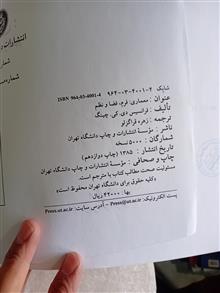 انتشارات د
شمار
شماره م
شابک ۲-۴۰۰۱-۰۳-۹۶۴ ISBN 964-03-4001-4
عنوان: معماری: فرم، فضا و نظم
تألیف: فرانسیس دی. کی. چینگ
ترجمه: زهره قراگزلو
ناشر: مؤسسهٔ انتشارات و چاپ دانشگاه تهران
شمارگان: ۵۰۰۰ نسخه
تاریخ انتشار: ۱۳۸۵ (چاپ دوازدهم)
چاپ و صحافی: مؤسسهٔ انتشارات و چاپ دانشگاه تهران
مسئولیت صحت مطالب کتاب با مترجم است.
«کلیه حقوق برای دانشگاه تهران محفوظ است»
بها: ۴۲۰۰۰ ریال
پست الکترونیک: Press@ut.ac.ir – آدرس سایت: Press.ut.ac.ir